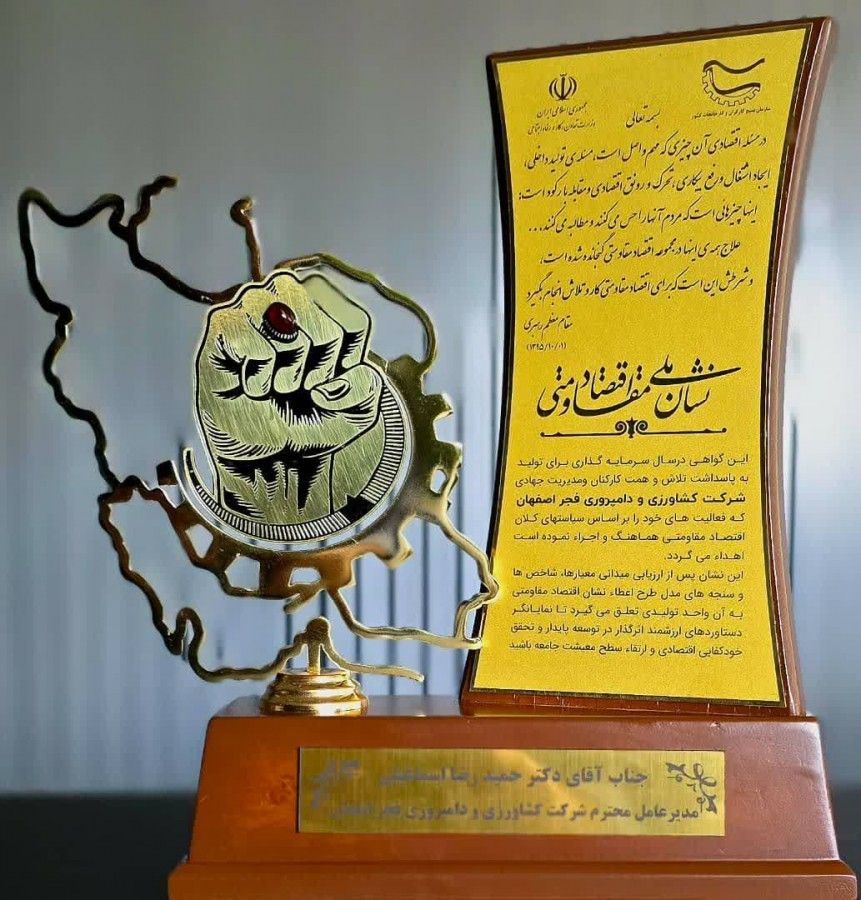 جمهوری اسلامی ایران
وزارت تعاون، کار و رفاه اجتماعی
سازمان بسیج کارگران و کارخانجات کشور
بسمه تعالی
در مسئله اقتصادی آن چیزی که مهم و اصل است، مسئله‌ی تولید داخلی،
ایجاد اشتغال و رفع بیکاری، تحرک و رونق اقتصادی و مقابله با رکود است:
اینها چیزهائی است که مردم آنها را حس می کنند و مطالبه می کنند...
علاج همه‌ی اینها در مجموعه اقتصاد مقاومتی گنجانده شده است،
و شرطش این است که برای اقتصاد مقاومتی کار و تلاش انجام بگیرد
مقام معظم رهبری
(۱۳۹۵/۱۰/۰۱)
نشان ملی اقتصاد مقاومتی
این گواهی درسال سرمایه گذاری برای تولید
به پاسداشت تلاش و همت کارکنان ومدیریت جهادی
شرکت کشاورزی و دامپروری فجر اصفهان
که فعالیت های خود را بر اساس سیاستهای کلان
اقتصاد مقاومتی هماهنگ و اجراء نموده است
اهداء می گردد.
این نشان پس از ارزیابی میدانی معیارها، شاخص ها
و سنجه های مدل طرح اعطاء نشان اقتصاد مقاومتی
به آن واحد تولیدی تعلق می گیرد تا نمایانگر
دستاوردهای ارزشمند اثرگذار در توسعه پایدار و تحقق
خودکفایی اقتصادی و ارتقاء سطح معیشت جامعه باشید
جناب آقای دکتر حمید رضا
مدیرعامل محترم شرکت کشاورزی و دامپروری فجر اصفهان